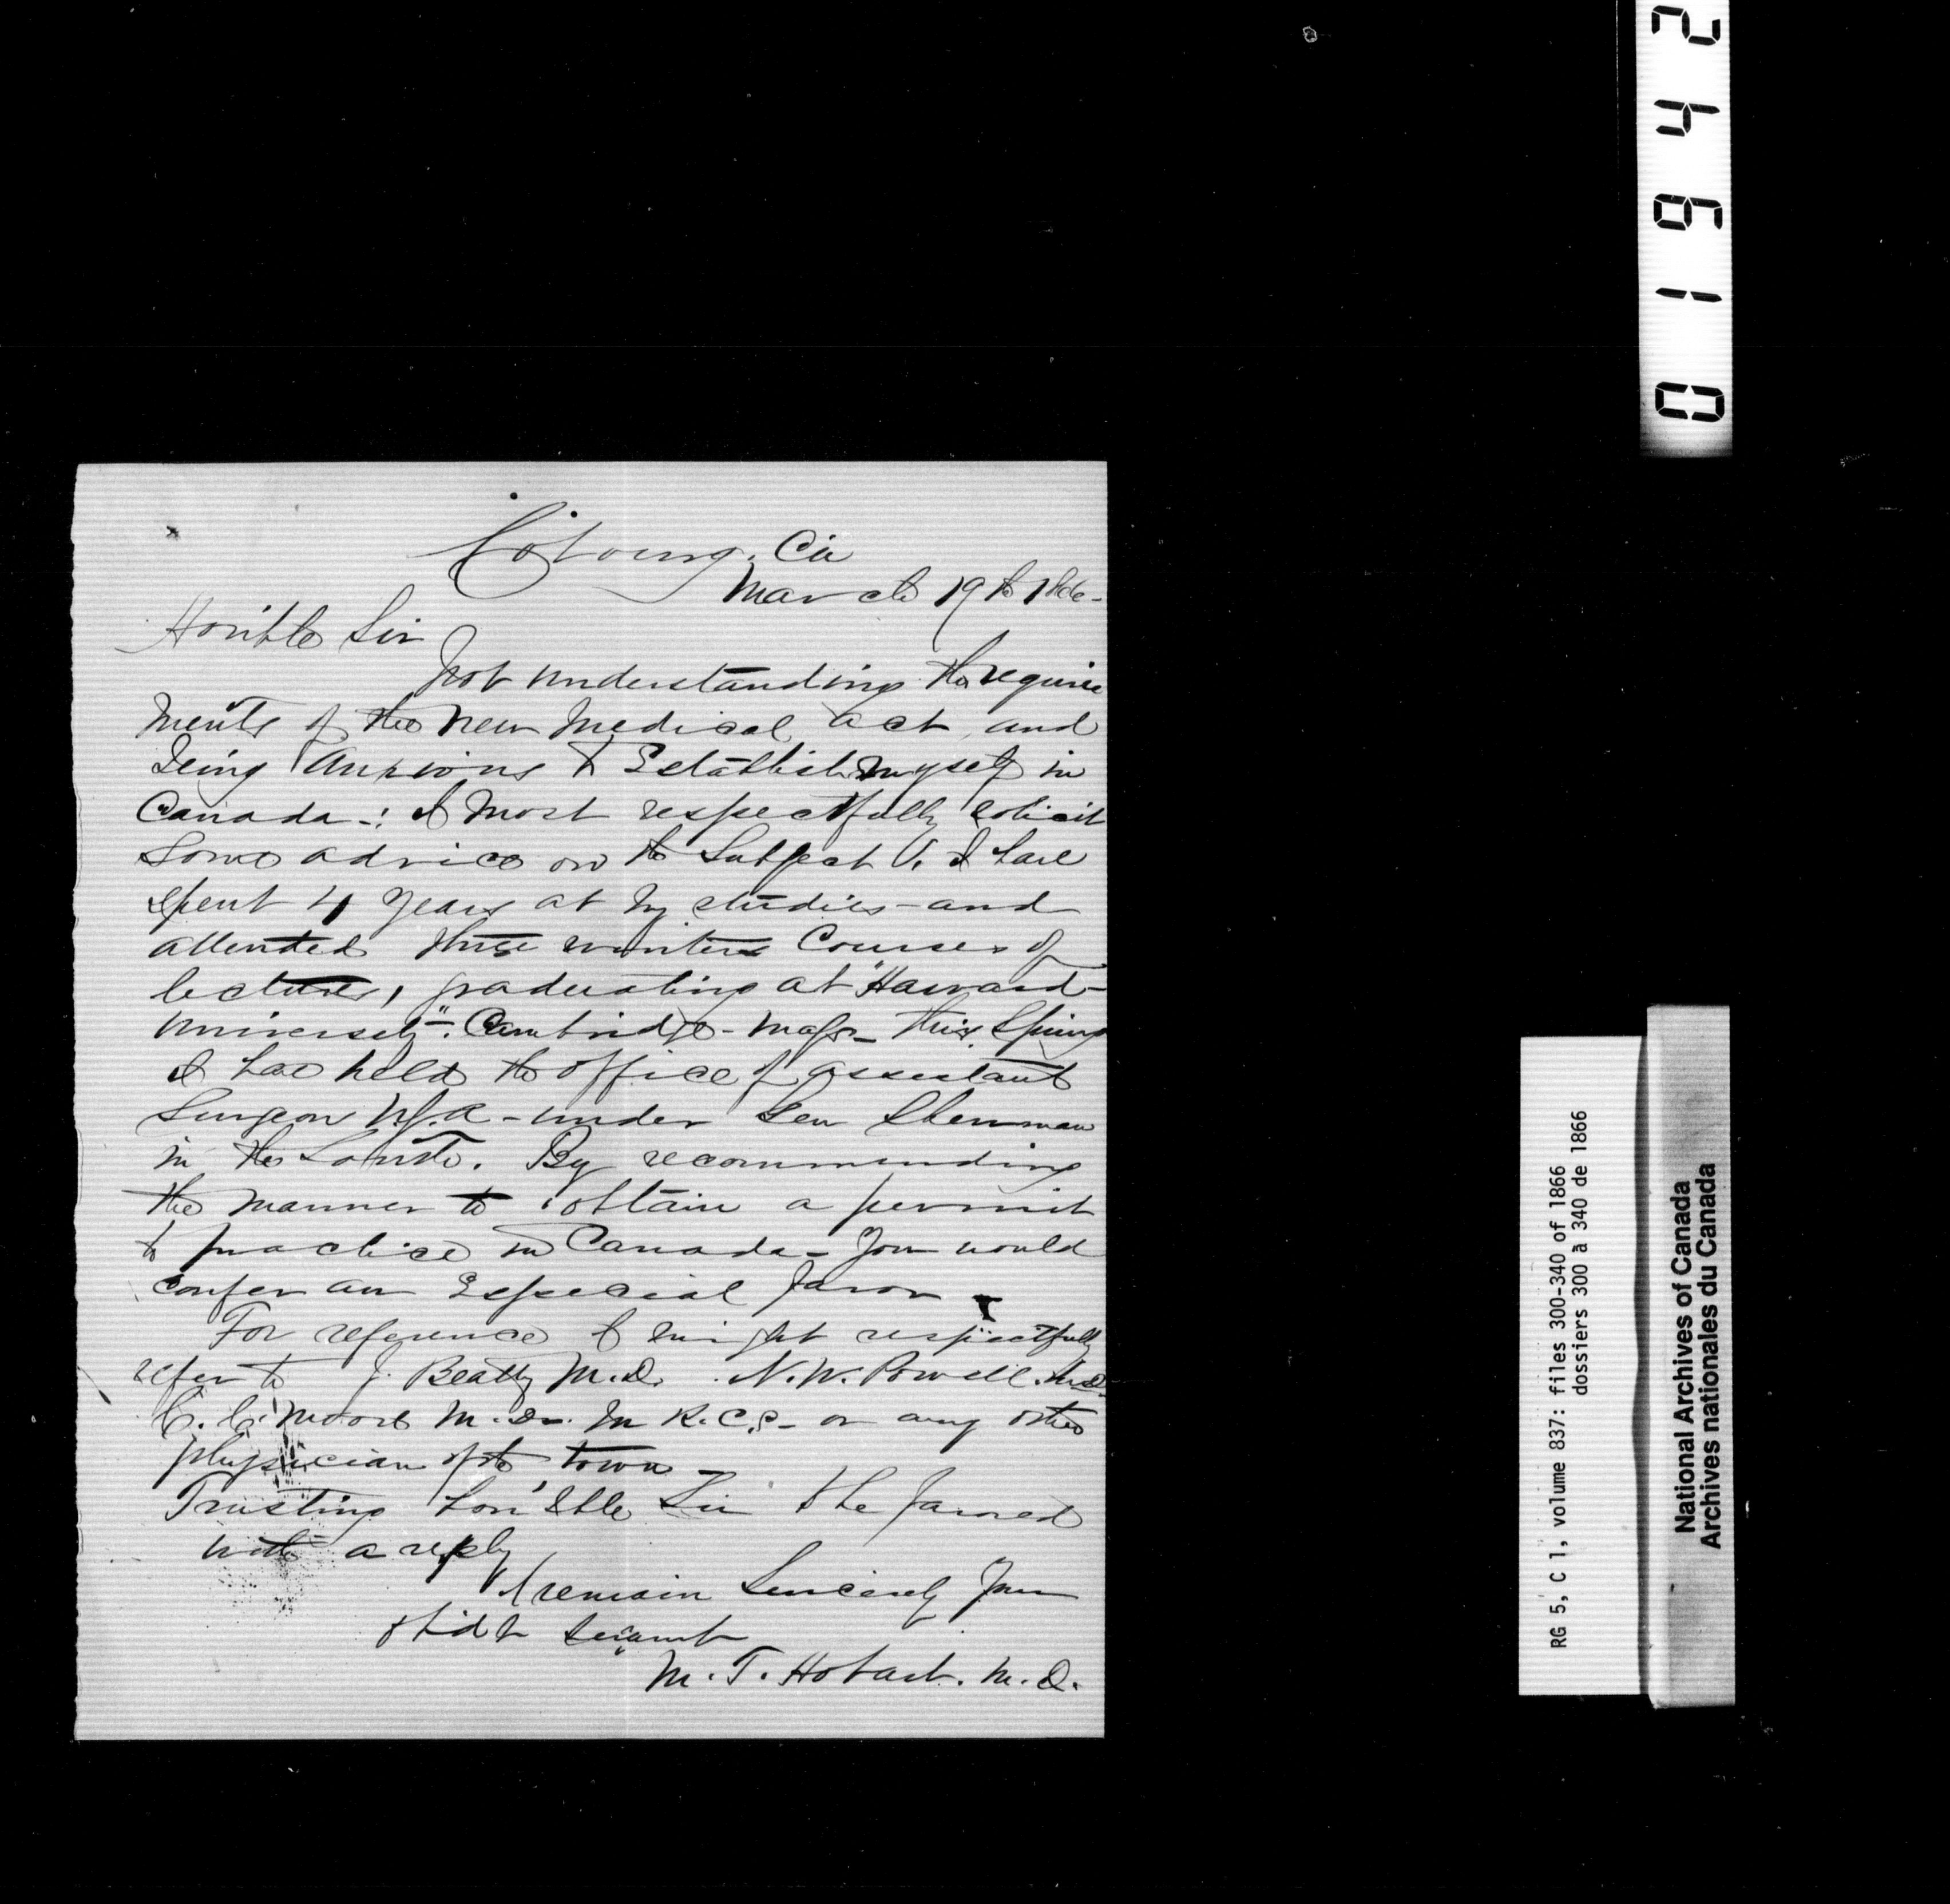 Cobourg. C.W.
March 19th 1866-
Hon'ble Sir
Not understanding the require
ments of the new Medical act, and
being Anxious to Establish myself in
Canada-: I most respectfully solicit
some advice on the subject. I have
spent 4 years at my studies - and
attended three winters Courses of
lectures, graduating at "Harvard-
University"-. Cambridge - Mass - this Spring
I have held the office of assistant
Surgeon U.S.A - under Gen Sherman
in the South. By recommending
the manner to obtain a permit
to practice in Canada - You would
confer an Especial favor -
For reference I might respectfully
refer to J. Beatty M.D. N.W. Powell. M.D.
C. C. Moore M.D. M R.C.S - or any other
physician of the town -
Trusting hon'ble Sir the favored
with a reply
I remain Sincerely Your
obidt servant
M. T. Hobart. M.D.
01642
RG 5, C 1, volume 837: files 300-340 of 1866
dossiers 300 à 340 de 1866
National Archives of Canada
Archives nationales du Canada